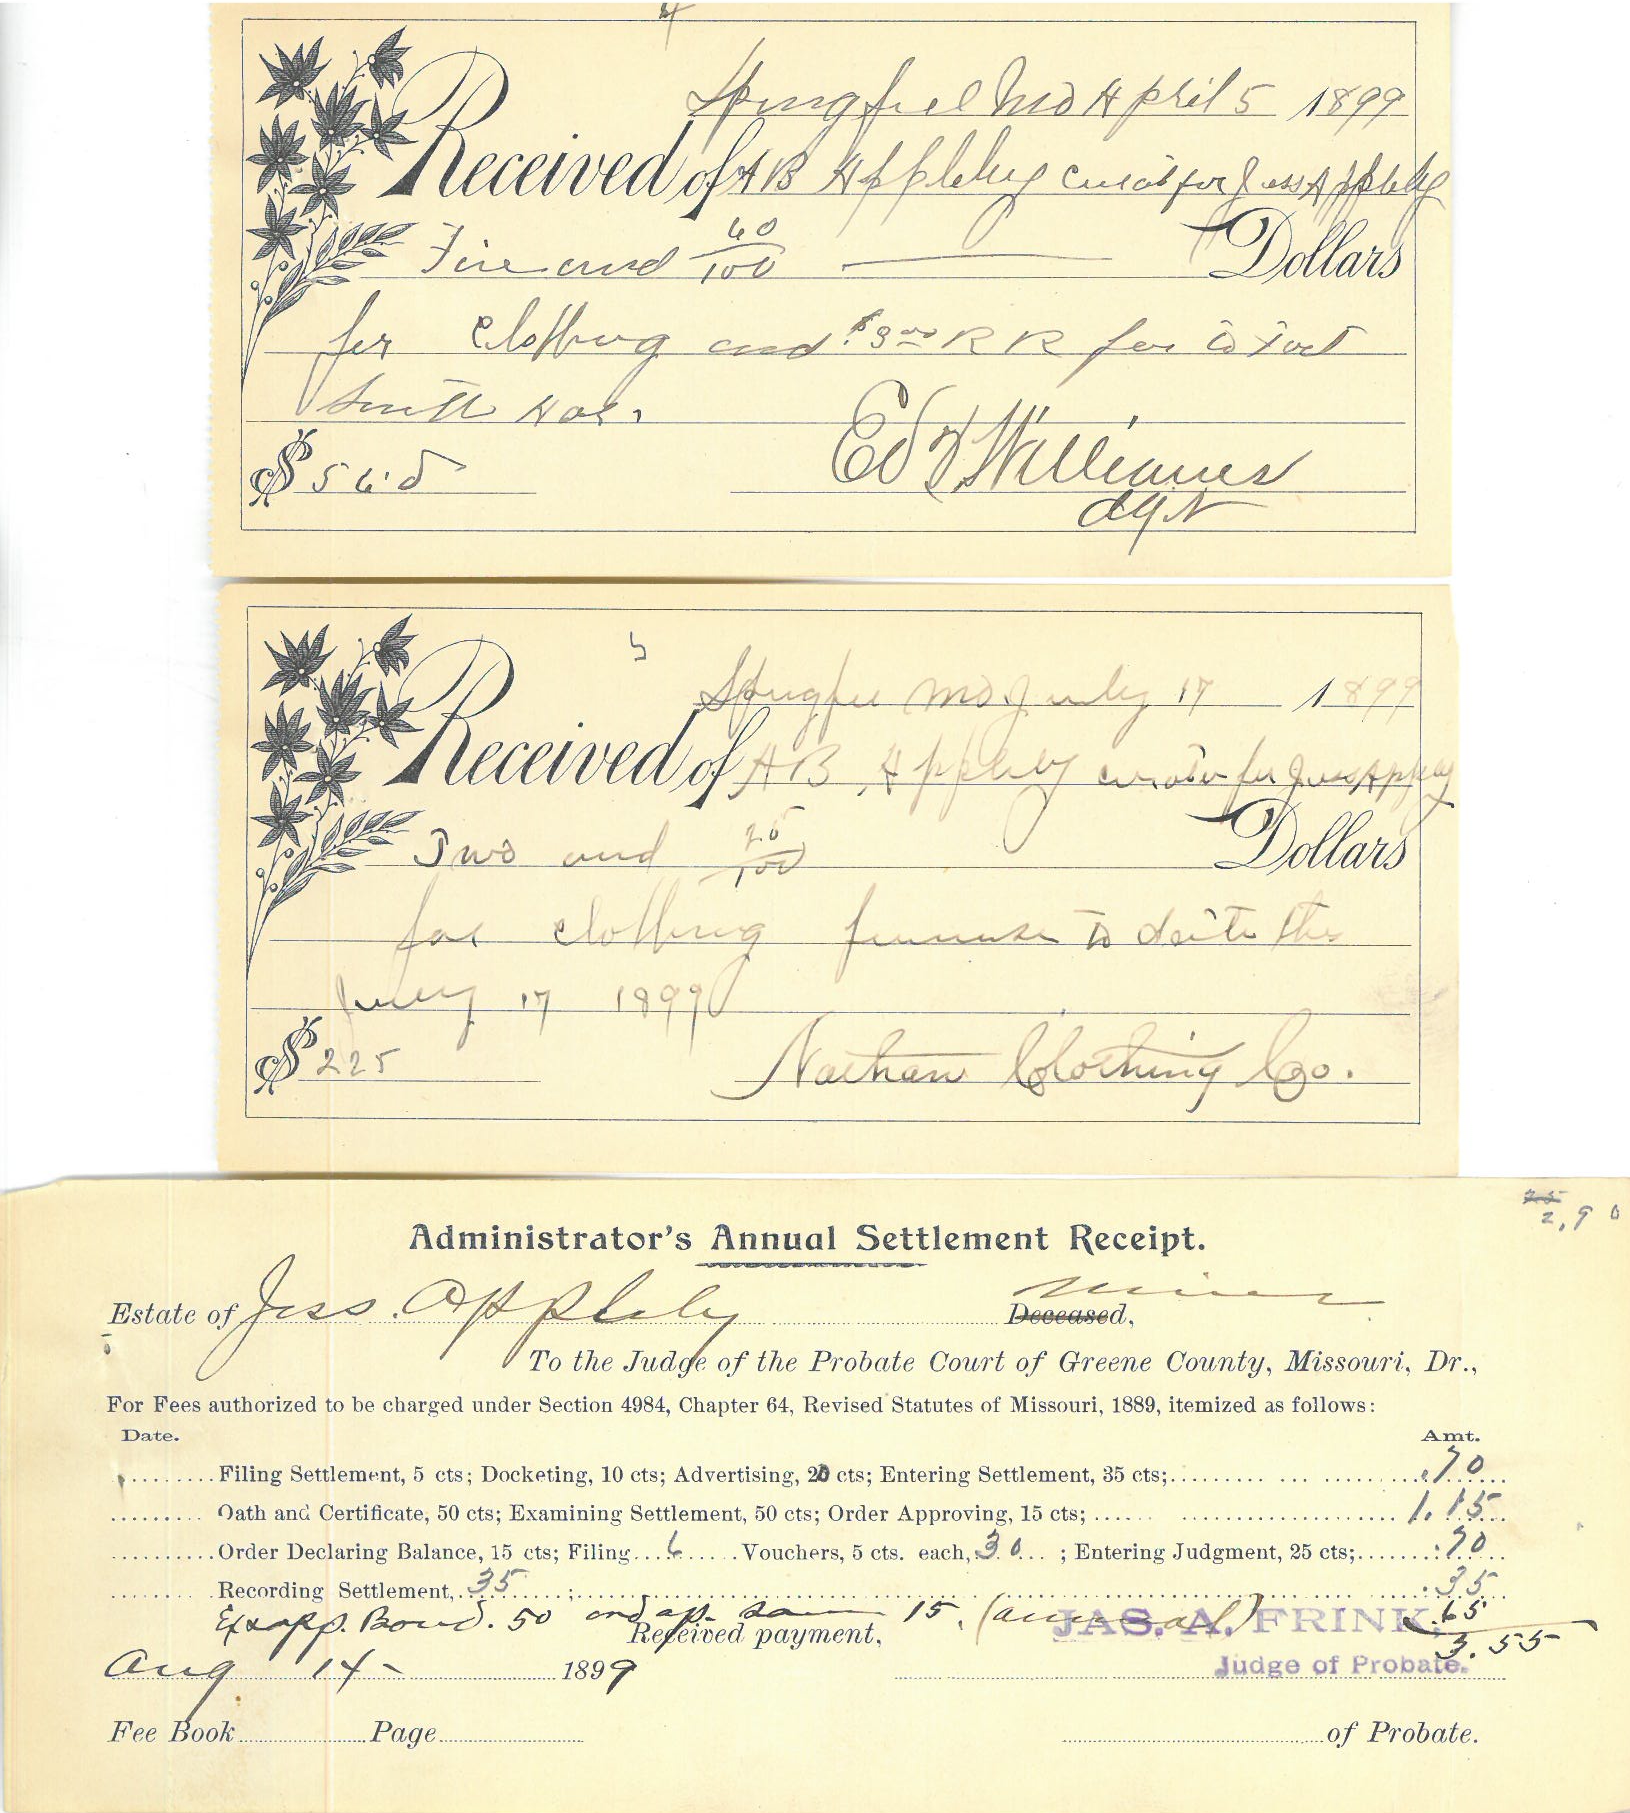 4
Springfiel Mo April 5 1899
Received of A B Appleby curator for Jess Appleby
Five and 60/100 Dollars
for Clothing and $3 00 R R far to Fort
Smith
$ 560 Ed Williams
Agt
5
Springfie Mo. July 17 1899
Received of A B Appleby curator for Jess Appleby
Two and 25/100 Dollars
for clothing to date this
July 17 1899
$ 225 Nathan Clothing Co.
25
2,90
Administrator's Annual Settlement Receipt.
Estate of Jess. Appleby Deceased, Minor
To the Judge of the Probate Court of Greene County, Missouri, Dr.,
For Fees authorized to be charged under Section 4984, Chapter 64, Revised Statutes of Missouri, 1889, itemized as follows:
Date. Amt.
Filing Settlement, 5 cts; Docketing, 10 cts; Advertising, 20 cts; Entering Settlement, 35 cts; .70
Oath and Certificate, 50 cts; Examining Settlement, 50 cts; Order Approving, 15 cts; 1.15
Order Declaring Balance, 15 cts; Filing 6 Vouchers, 5 cts. each, 30 ; Entering Judgment, 25 cts; .70
Recording Settlement, 35 ; .35
Bond. 50 and ap. same 15. (annual) .65
Received payment, JAS. A. FRINK, 3.55
Aug 14- 1899 Judge of Probate.
Fee Book Page of Probate.